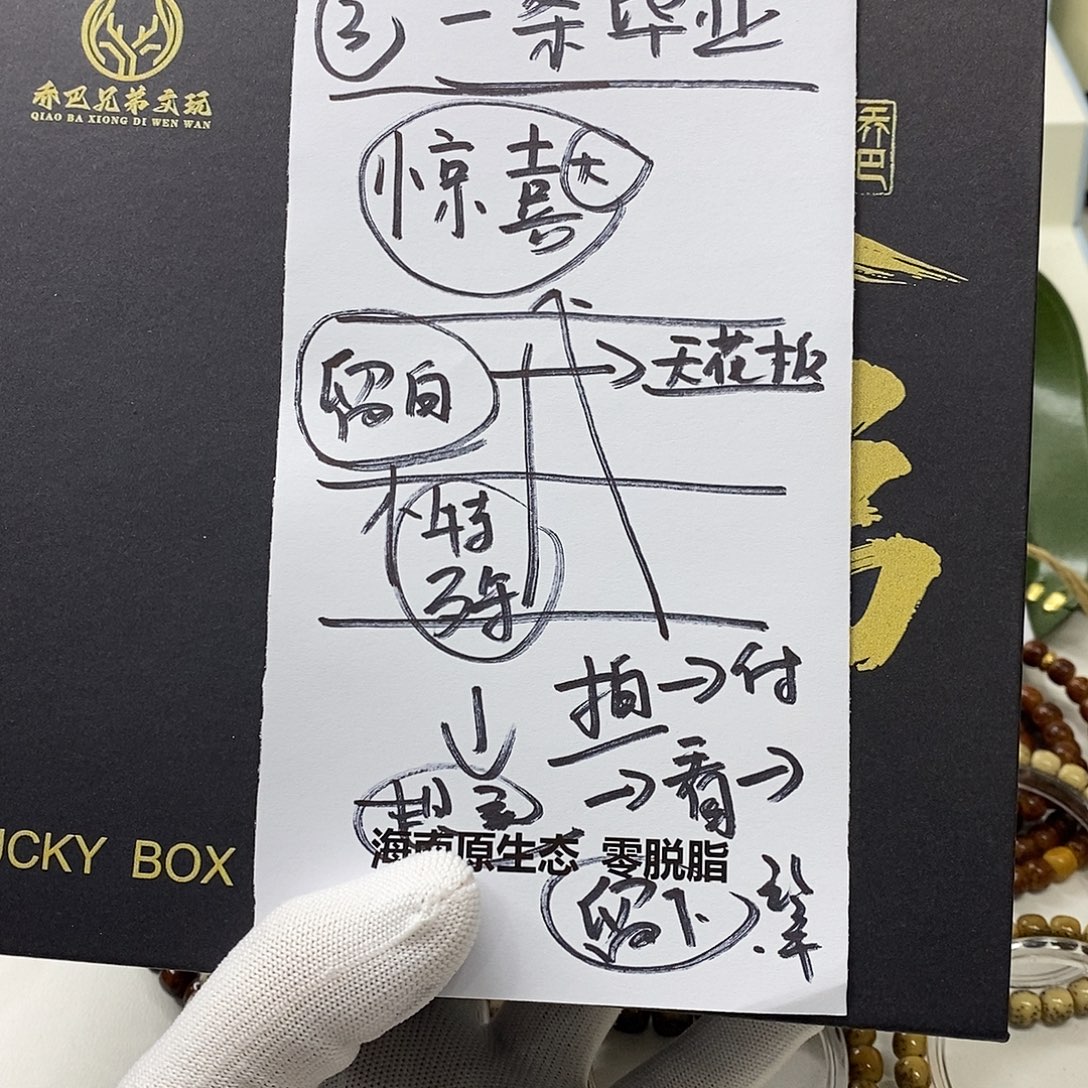 ③ 一条毕业
乔巴兄弟文玩
QIAO BA XIONG DI WEN WAN
乔巴
惊喜大
留白 → 天花板
特
殊
拍 → 付
→ 看 →
海南原生态 零脱脂
留下
UCKY BOX